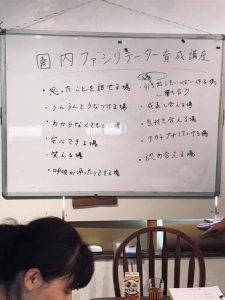 園内ファシリテーター育成講座
・思ったことを話せる場
・うんうんとうなづける場
・わからなくても、場
・安心できる場
・笑える場
・呼吸が ができる場
・引き出しをいっぱい作る場
・成長し合える場
・気持を合える場
・アウトプットしていける場
・認め合える場